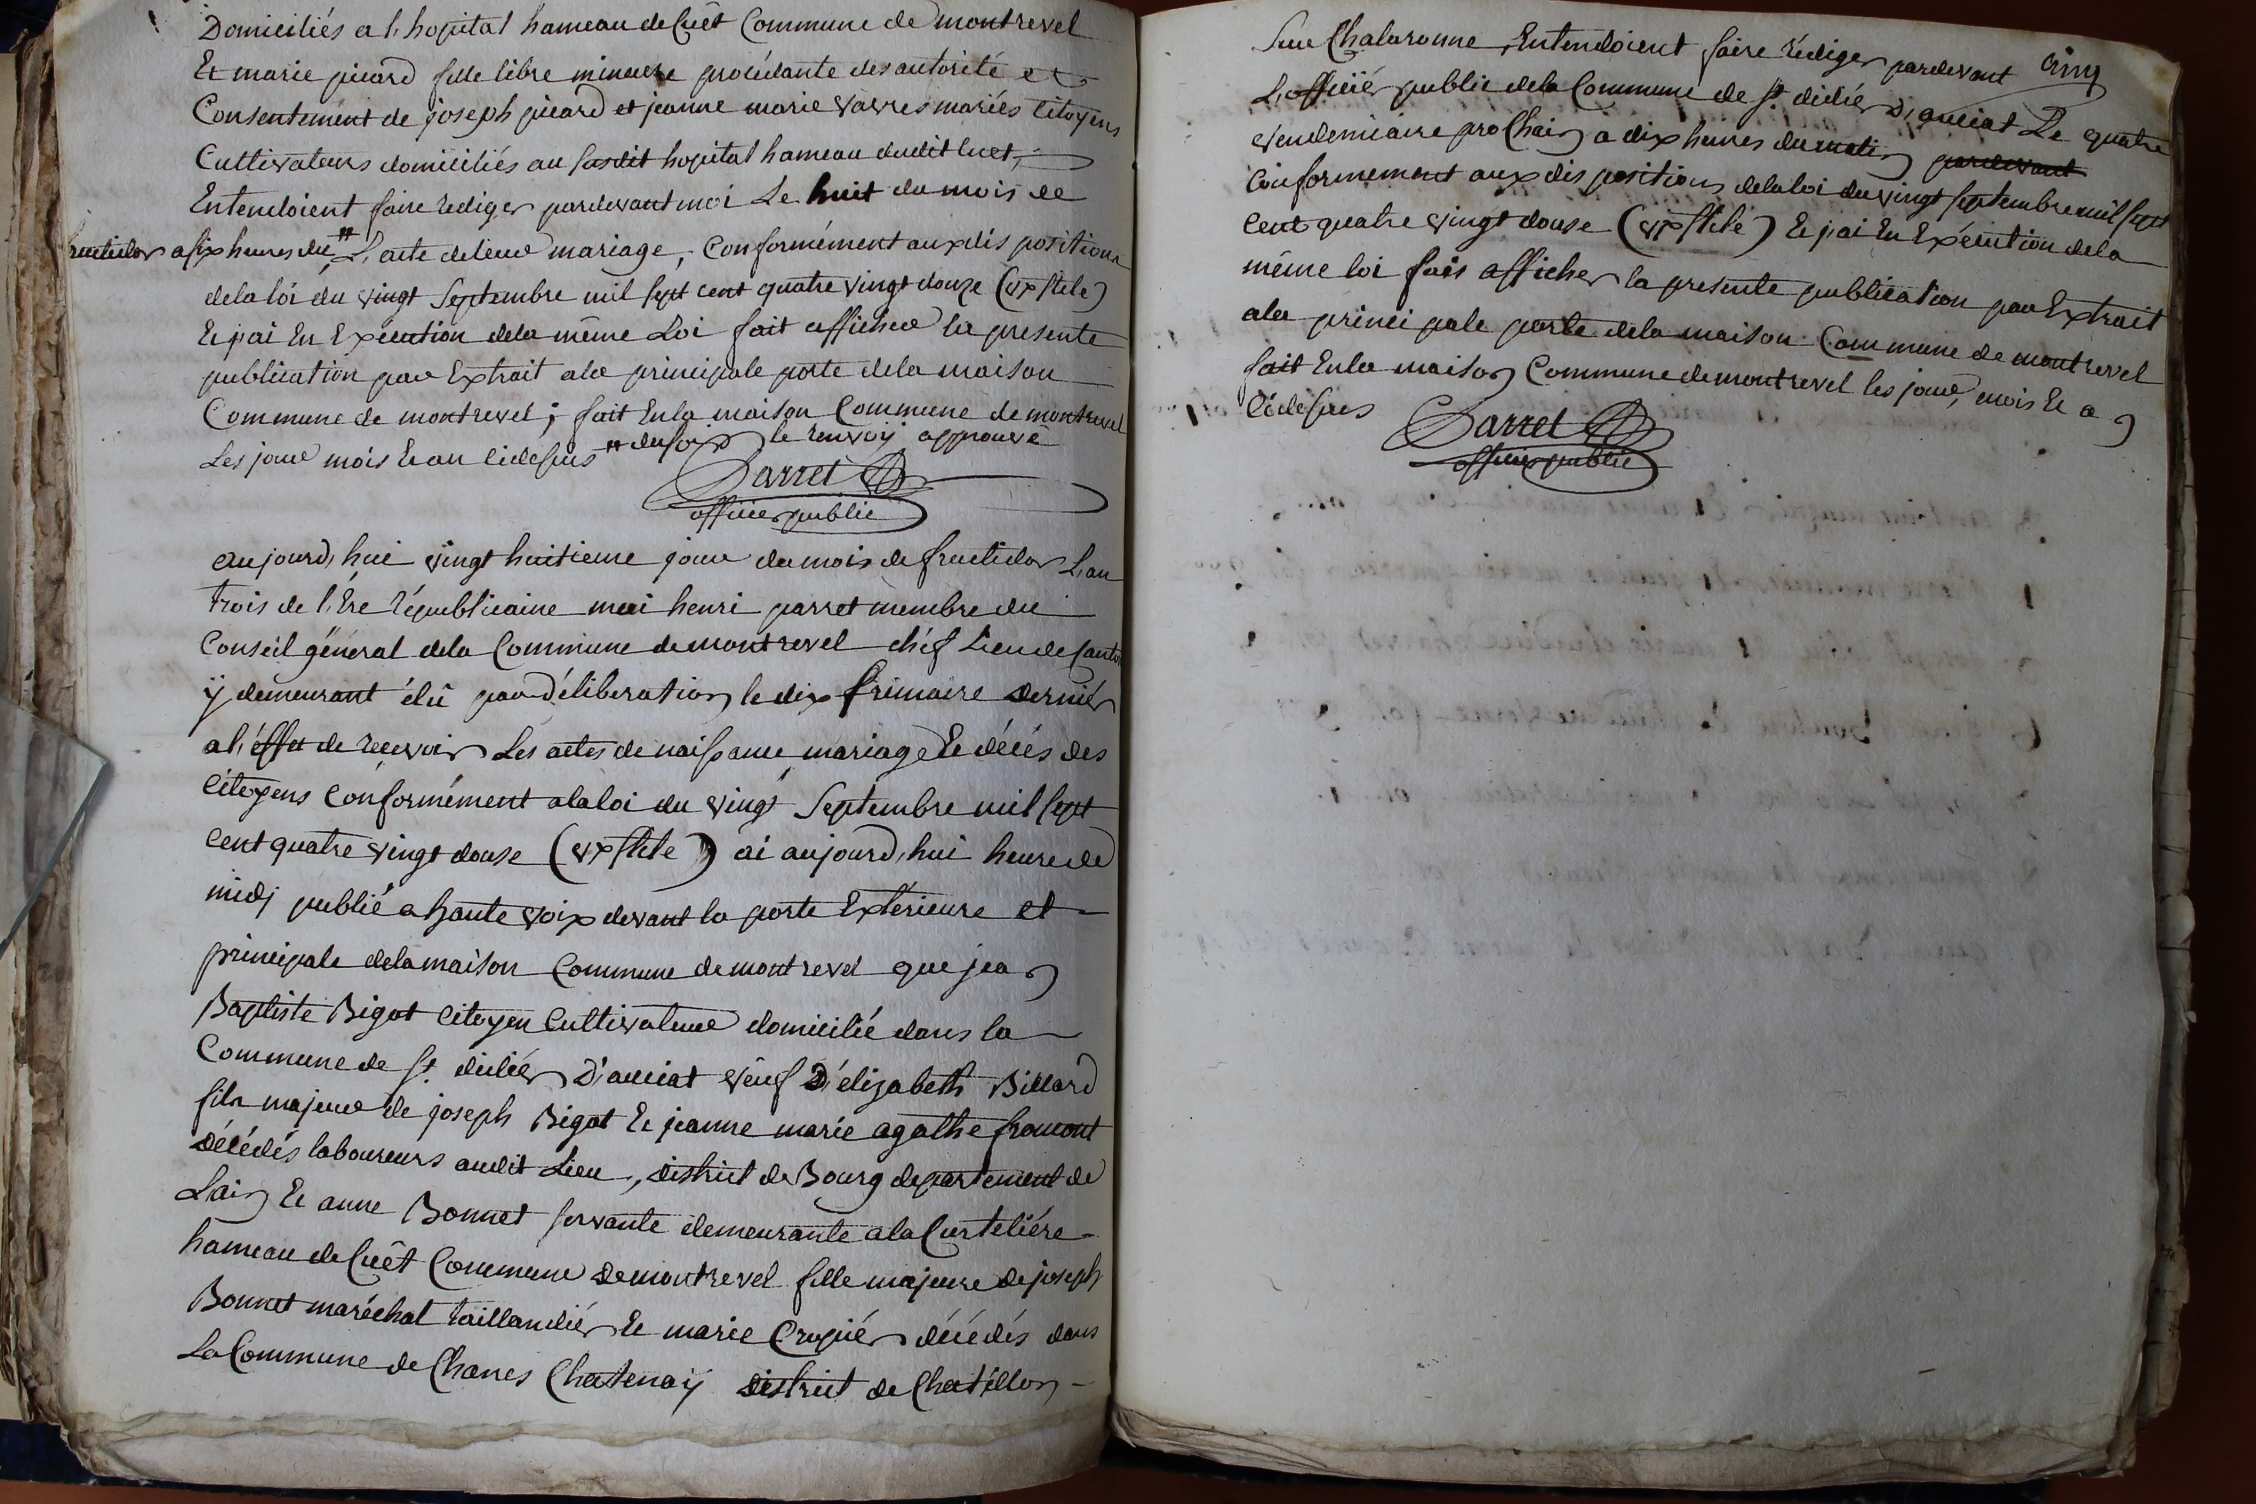 Domiciliés a l,hopital hameau de Cuêt Commune de montrevel
Et marie picard fille libre mineure procédante des autorité et
Consentement de joseph picard et jeanne marie vavres mariés Citoyens
Cultivateurs domiciliés au susdit hopital hameau dudit Cuet,
Entendoient faire rediger pardevant moi Le huit du mois de
fructidor a six heures du # L,acte de leur mariage, Conformément aux dis positions
de la loi du vingt Septembre mil sept cent quatre vingt douze (vx stile)
Et j'ai En Exécution de la même Loi fait afficher la presente
publication par Extrait a la principale porte de la maison
Commune de montrevel; fait En la maison Commune de montrevel
Les jour mois Et an ci dessus # du soir le renvoÿ approuvé
Parret
officier public
aujourd,hui vingt huitieme jour du mois de fructidor L,an
trois de l'Ere républicaine moi henri parret membre du
Conseil général de la Commune de montrevel chef Lieu de Canton
ÿ demeurant élû par déliberation le dix frimaire dernier
a l'éffet de recevoir Les actes de naissance mariage Et décés des
Citoyens Conformément a la loi du vingt Septembre mil sept
cent quatre vingt douse (vx stile) ai aujourd,hui heure de
midj publié a haute voix devant la porte Extérieure et
principale de la maison Commune de montrevel que jean
Baptiste Bigot Citoyen Cultivateur domicilié dans la
Commune de St. didier D'auciat veuf D'élizabeth Billard
fils majeur de joseph Bigot Et jeanne marie agathe fromont
décédés laboureurs audit Lieu, district de Bourg departement de
L'ain Et anne Bonnet servante demeurante a la Curteliére
hameau de Cuêt Commune de montrevel fille majeure de joseph
Bonnet maréchal taillandiér Et marie Cropiér décédés dans
La Commune de Chanes Chatenaÿ district de Chatillon
Sur Chalaronne, Entendoient faire rédiger pardevant
Cinq
L,officiér public de la Commune de St. didiér D,auciat Le quatre
vendemiaire pro Chain a dix heures du matin pardevant
Conformement aux dis positions de la loi du vingt septembre mil sept
cent quatre vingt douse (vx stile) Et j'ai En Exécution de la
même loi fais afficher la presente publication par Extrait
a la princi pale porte de la maison Commune de montrevel
fait En la maison Commune de montrevel les jour, mois Et an
Ci dessus
Parret
officier public